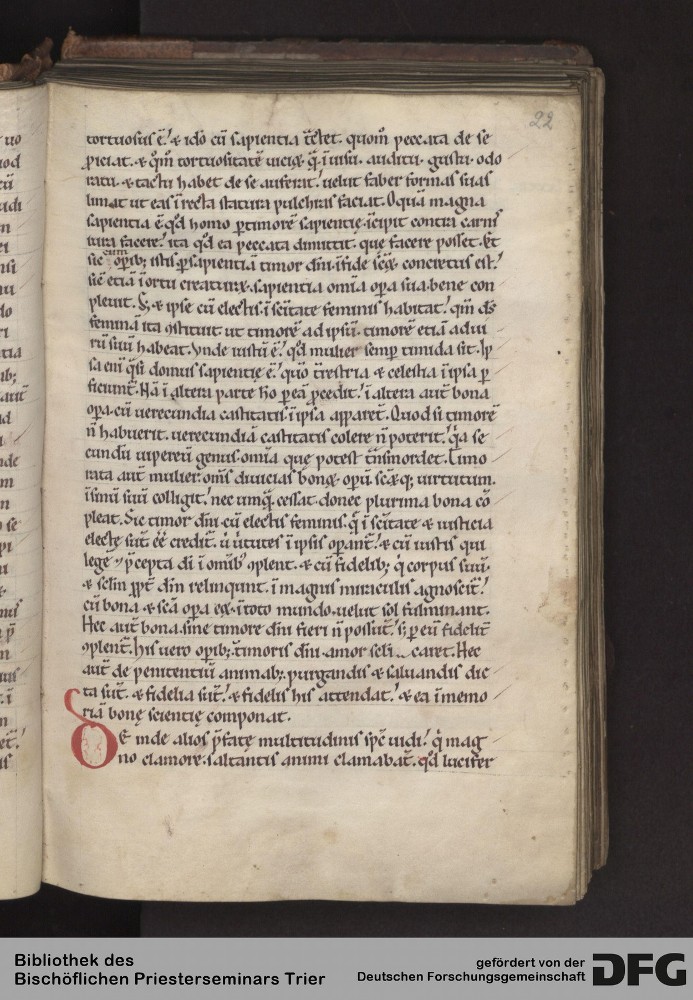 22
tortuosus ē. & idō cū sapientia t̄ret. quom̄ peccata de se
ꝓiciat. & qm̄ tortuositatē uicię. q̄ ī uisu. auditu. gustu. odo
ratu. & tactu habet de se auferat. uelut faber formas suas
limat ut eas ī recta statura pulchras faciat. O quā magna
sapientia ē. qd̄ homo ꝑ timorē sapientię īcipit contra carnē
iura facere. ita qd̄ ea peccata dimittit. quę facere posset. Et
sic cum opib; istis ꝑ sapientiā timor dn̄i. ī fide scę concretus est.
sic etiā ī ortu creaturę. sapientia omīa opa sua bene con
pleuit. S; & ipse cū electis. ī sc̄itate feminis habitat. qm̄ ds̄
feminā ita ꝯstituit ut timorē ad ipsū. timorē etiā ad ui
rū suū habeat. Vnde iustū ē. qd̄ mulier semꝑ timida sit. Ip
sa eni q̄si domus sapientię ē. quo t̄restria & celestia ī ipsa ꝑ
ficiunt̄. Nā ī altera parte ho ꝑ eā ꝓcedit. ī altera aut̄ bona
opa. cū uerecundia castitatis ī ipsa apparet. Quod si timorē
n̄ habuerit. uerecundiā castitatis colere n̄ poterit. q̄a se
cundū uipereū genus omīa quę potest t̄nsmordet. Timo
rata aut̄ mulier. om̄s diuicias bonę. opū scāq; uirtutum.
ī sinū suū colligit. nec umq̄ cessat. donec plurima bona cō
pleat. Sic timor dn̄i. cū electis feminis. q̄ ī sc̄itate & iusticia
electę sūt. eē credit̄. ù ùtutes ī ipsis opant̄. & cū iustis qui
legē & p̄cepta di ī omib' ꝯplent. & cū fidelib; q̇ corpus suū.
& selm̄ ꝓpt̄ dm̄ relinquunt. ī magnis miraculis agnoscit̄.
cū bona & scā opa eę. ī toto mundo. uelut sol fulminant.
Hec aut̄ bona. sine timore dn̄i fieri n̄ possūt. s; ꝑ eū fidelit̄
ꝯplent̄. his uero opib; timoris dn̄i. amor scli caret. Hec
aut̄ de penitentiū animab;. purgandis & saluandis dic
ta sūt. & fidelia sūt. & fidelis his attendat. & ea ī memo
riā bonę scientię componat.
DE inde alios p̄fatę multitudinis spc̄ uidi. q̇ mag
no clamore. saltantis animi clamabāt. qd̄ lucifer
Bibliothek des
Bischöflichen Priesterseminars Trier
gefördert von der
Deutschen Forschungsgemeinschaft
DFG